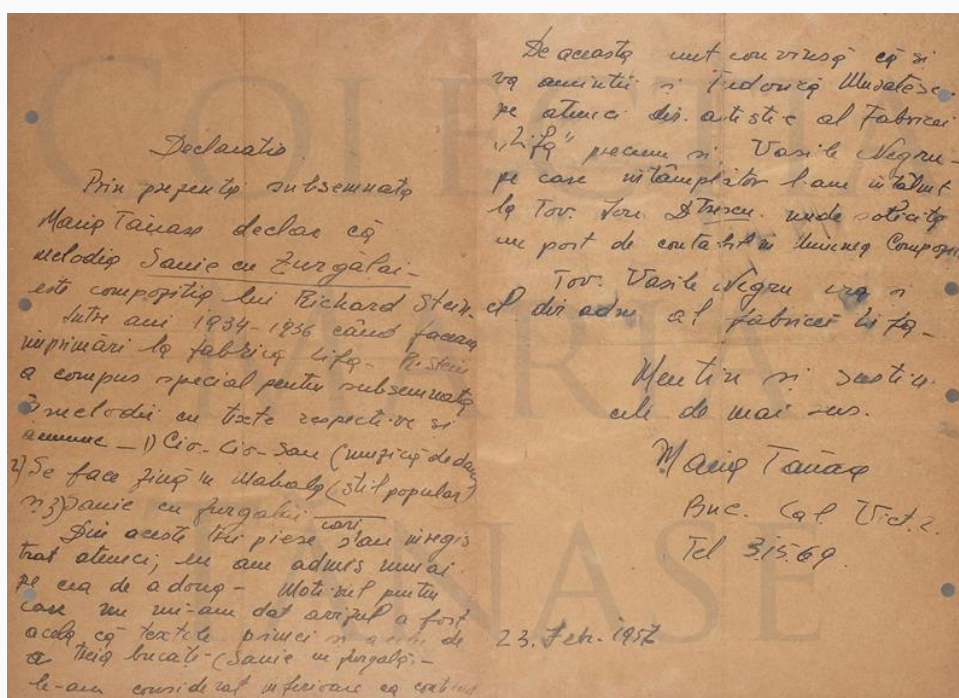 Declaratie
Prin prezenta subsemnata
Maria Tănase declar că
melodia Sanie cu Zurgălăi -
este compoziția lui Richard Stein.
Între ani 1934-1936 când faceam
imprimări la fabrica Lifa - R. Stein
a compus special pentru subsemnata
3 melodii cu texte respective și
anume - 1) Cio-Cio-San (muzică de dans
2) Se face ziuă în Mahala (stil popular)
și 3) Sanie cu zurgălăi cari
Din aceste trei piese s'au înregis
trat atunci, eu am admis numai
pe cea de a doua - Motivul pentru
care nu mi-am dat avizul a fost
acela că textele primei și acelei de
a treia bucăți - (Sanie cu zurgălăi -
le-am considerat inferioare ca conținut
De aceasta sunt convinsă că și
va aminti și Tudorică Mușatescu.
pe atunci dir. artistic al Fabricei
"Lifa" precum și Vasile Negru -
pe care întâmplător l-am întâlnit
la Tov. Ion Dtrescu unde solicita
un post de contabil în Uniunea Compozi
Tov. Vasile Negru era și
el dir adm. al fabricei Lifa -
Mentin și Sustin
cele de mai sus.
Maria Tănase
Buc. Cal. Vict. 2.
Tel 3.15.69.
23. Febr. 1957
COLECȚIA
MARIA
TANASE